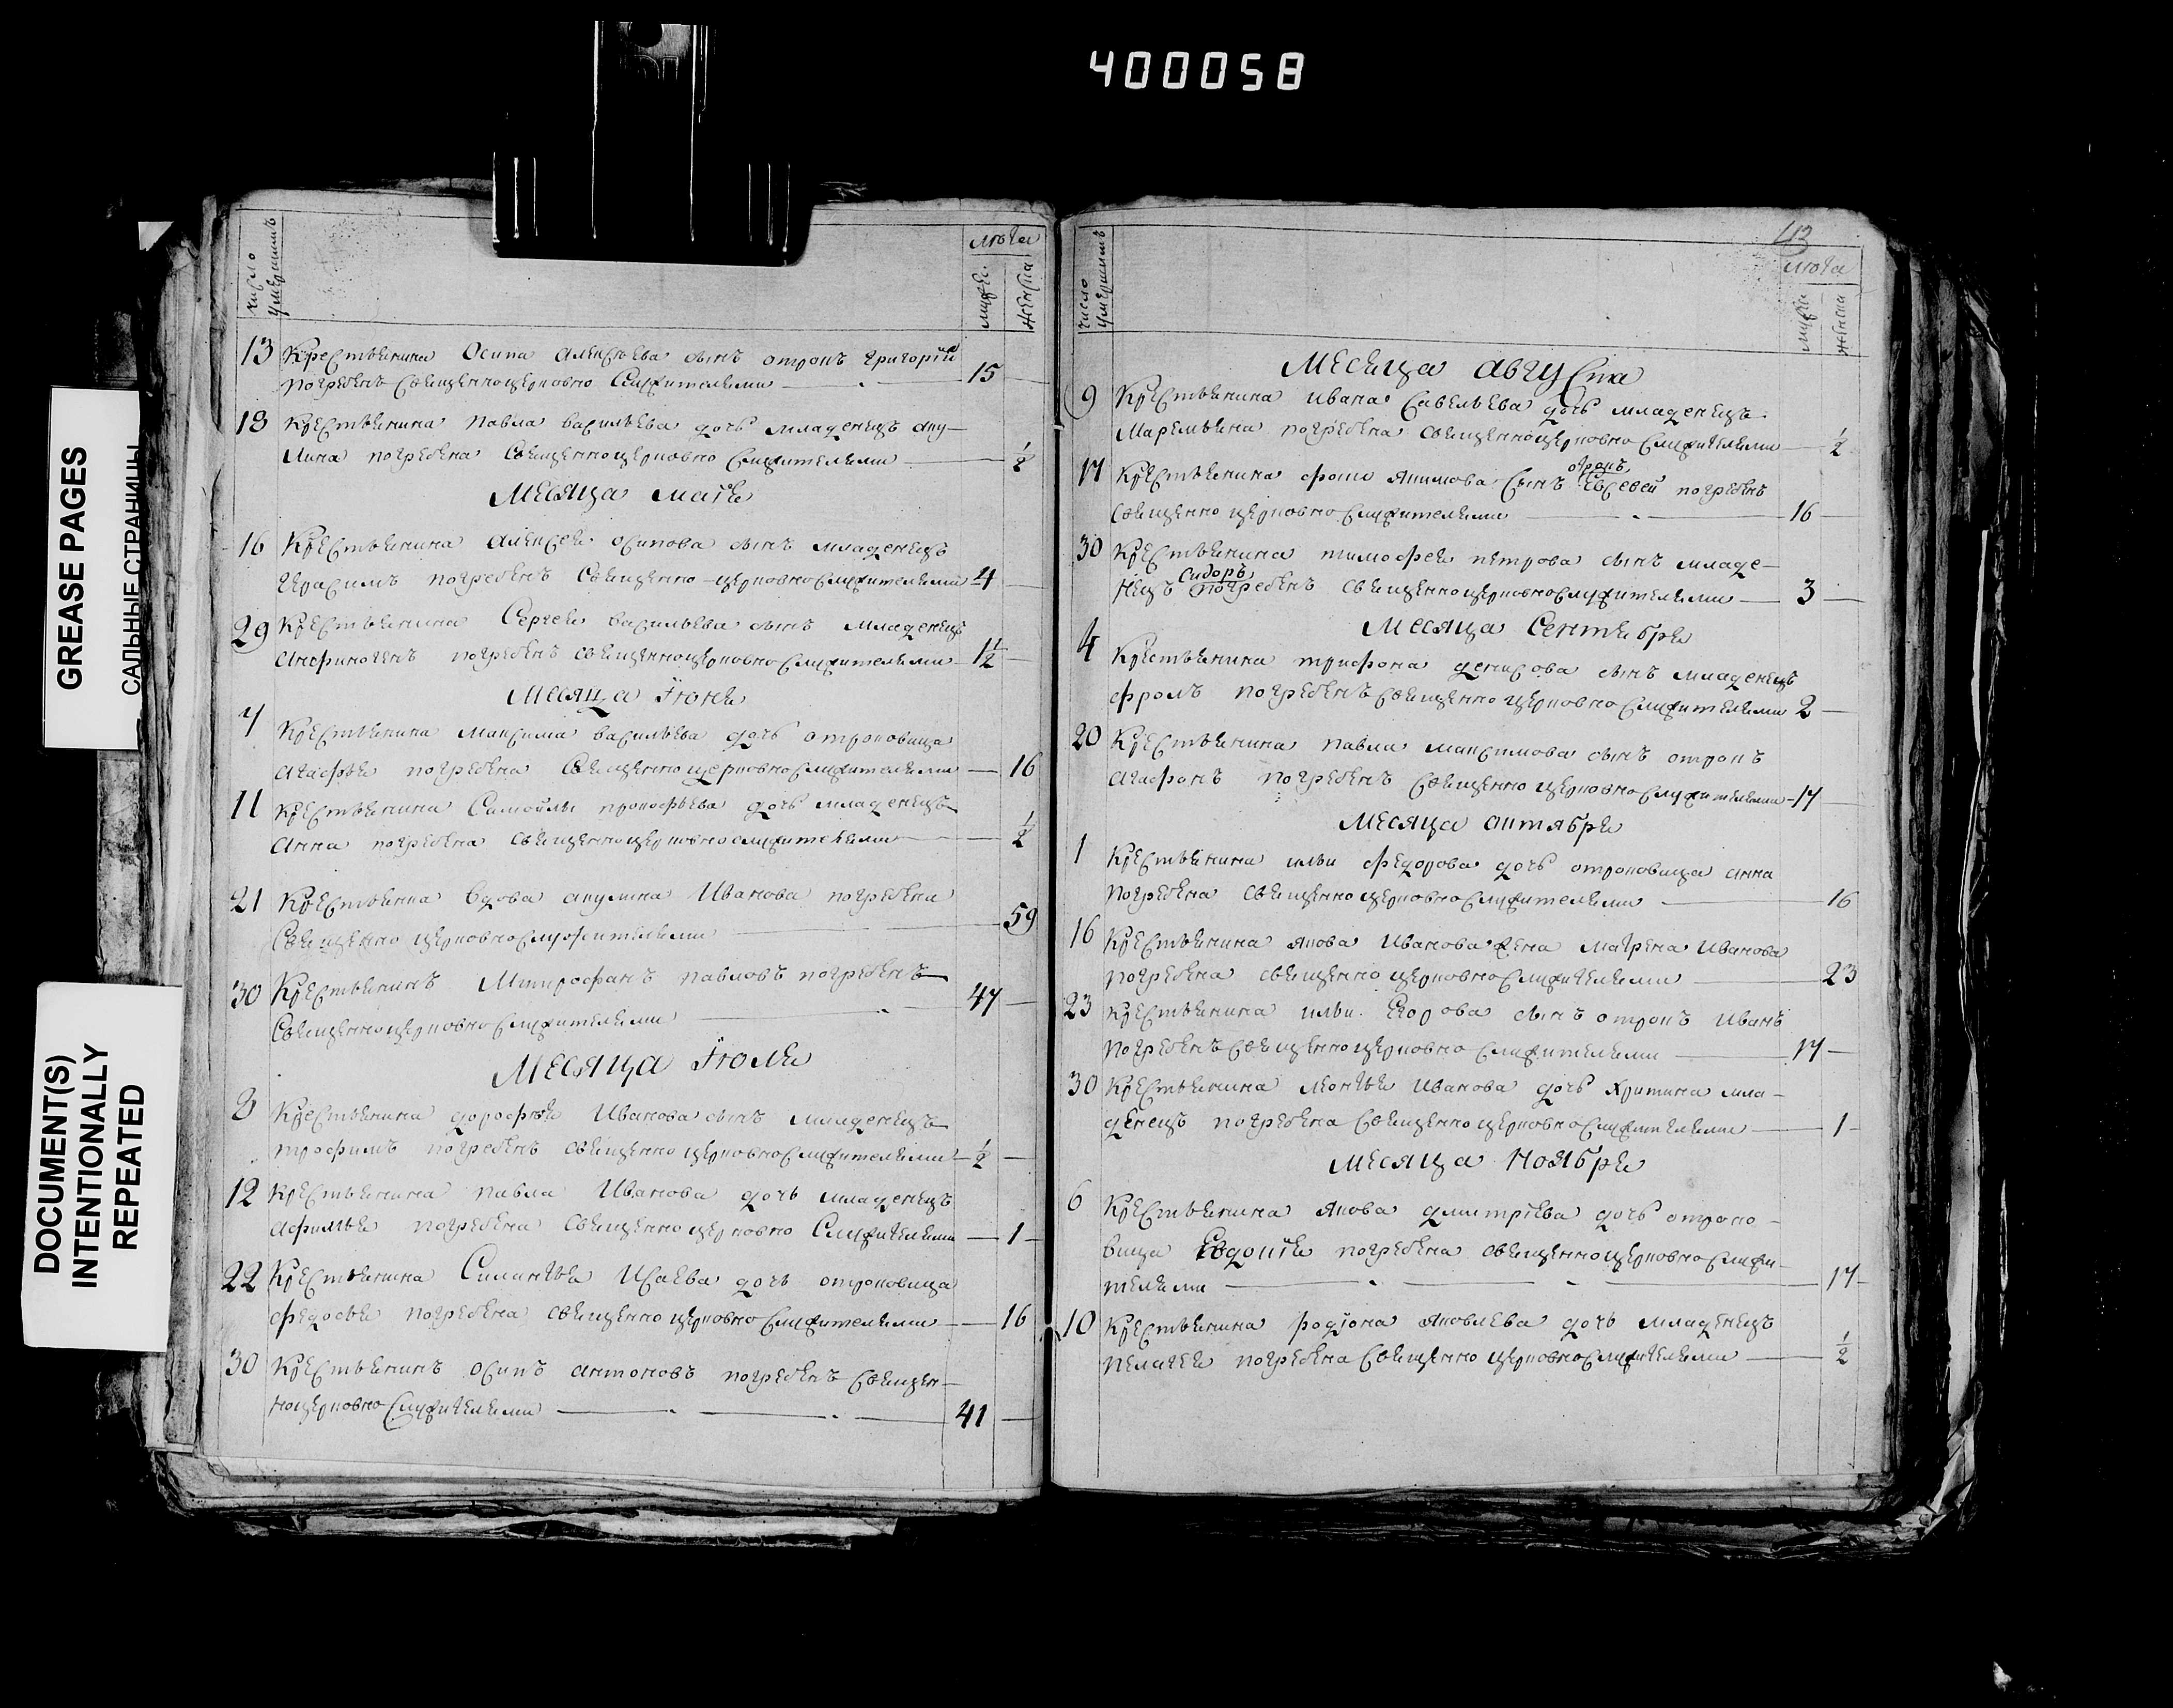 400058
GREASE PAGES
САЛЬНЫЕ СТРАНИЦЫ
DOCUMENT(S)
INTENTIONALLY
REPEATED
число
умершимъ
лѣта
мужес.
женска
13 Крестьянина Осипа Алексѣева сынъ отрокъ Григорїй
погребенъ священноцерковно служителями 15
18 Крестьянина павла васильева дочь младенецъ аку-
лина погребена священноцерковно служителями ½
Месяца маїя
16 Крестьянина алексея осипова сынъ младенецъ
герасимъ погребенъ священно-церковнослужителями 4
29 Крестьянина Сергея васильева сынъ младенецъ
анфиногенъ погребенъ священноцерковнослужителями 1½
Месяца Їюня
7 Крестьянина максима васильева дочь отроковица
агафья погребена священноцерковнослужителями 16
11 Крестьянина Самойлы прокофьева дочь младенецъ
анна погребена священноцерковнослужителями ½
21 Крестьянка вдова акулина Иванова погребена
священно церковнослужителями 59
30 Крестьянинъ Митрофанъ павловъ погребенъ
священноцерковнослужителями 47
Месяца Їюля
3 Крестьянина дорофѣя Иванова сынъ младенецъ
трофимъ погребенъ священно церковнослужителями ½
12 Крестьянина павла Иванова дочь младенецъ
афимья погребена священно церковно служителями 1
22 Крестьянина Силантья Исаева дочь отроковица
федосья погребена священно церковно служителями 16
30 Крестьянинъ осипъ антоновъ погребенъ священ-
ноцерковно служителями 41
43
число
умершимъ
лѣта
мужеска
женска
Месяца августа
9 Крестьянина ивана Савельева дочь младенецъ
Маремьяна погребена священноцерковно служителями ½
отрокъ
17 Крестьянина фомы Якимова сынъ Евсевей погребенъ
священно церковно служителями 16
30 Крестьянина тимофея петрова сынъ младе-
Сидоръ
нецъ погребенъ священноцерковнослужителями 3
Месяца Сентября
4 Крестьянина трифона денисова сынъ младенецъ
фролъ погребенъ священно церковно служителями 2
20 Крестьянина павла максимова сынъ отрокъ
агафонъ погребенъ священно церковно служителями 17
Месяца октября
1 Крестьянина ильи федорова дочь отроковица анна
погребена священно церковно служителями 16
16 Крестьянина якова Иванова жена матрена Иванова
погребена священно церковно служителями 23
23 Крестьянина ильи Егорова сынъ отрокъ Иванъ
погребенъ священно церковно служителями 17
30 Крестьянина леонтья Иванова дочь Хритина мла-
денецъ погребена священно церковно служителями 1
Месяца Ноября
6 Крестьянина Якова дмитрїева дочь отроко-
вица Евдокїя погребена священноцерковно служи-
телями 17
10 Крестьянина родїона яковлева дочь младенецъ
пелагея погребена священно церковно служителями ½